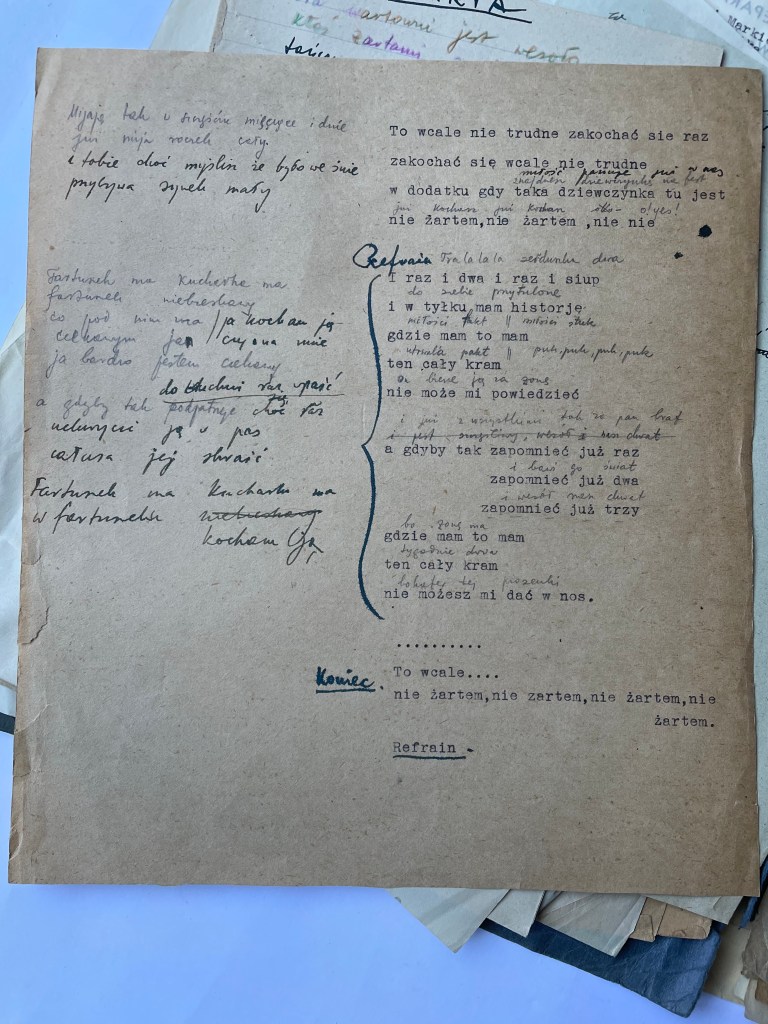 na wartowni jest wesoło
ktoś żartami
Mijają tak u miesiące i dnie
już mija roczek cały
i tobie choć myślin że było we śnie
przybywa synek mały
Fartuszek ma kucharka ma
fartuszek niebieskany
co pod nim ma / ja kocham ją
ciekawym ja / czy ona mnie
ja bardzo jestem ciekany
do kuchni raz wpaść
a gdyby tak choć raz
uchwycić ją w pas
całusa jej skraść
Fartuszek ma Kucharka ma
w fartuszku niebieskany
kocham ją
To wcale nie trudne zakochać sie raz
zakochać się wcale nie trudne
miłość panuje już w nas
w dodatku gdy taka dziewczynka tu jest
już kochasz już kocham o! yes!
nie żartem,nie żartem ,nie nie
Refrain Tra la la la serduszka dwa
I raz i dwa i raz i siup
do siebie przytulone
i w tyłku mam historję
miłości takt || miłości
gdzie mam to mam
utrwala pakt || puk, puk, puk, puk
ten cały kram
on bierze ją za żonę
nie może mi powiedzieć
i już z wszystkimi tak za pan brat
a gdyby tak zapomnieć już raz
i bawi go świat
zapomnieć już dwa
i wesół nasz chwat
zapomnieć już trzy
bo żonę ma
gdzie mam to mam
tygodnie dwa
ten cały kram
bohater tej piosenki
nie możesz mi dać w nos.
..........
Koniec. To wcale....
nie żartem,nie zartem,nie żartem,nie
żartem.
Refrain -